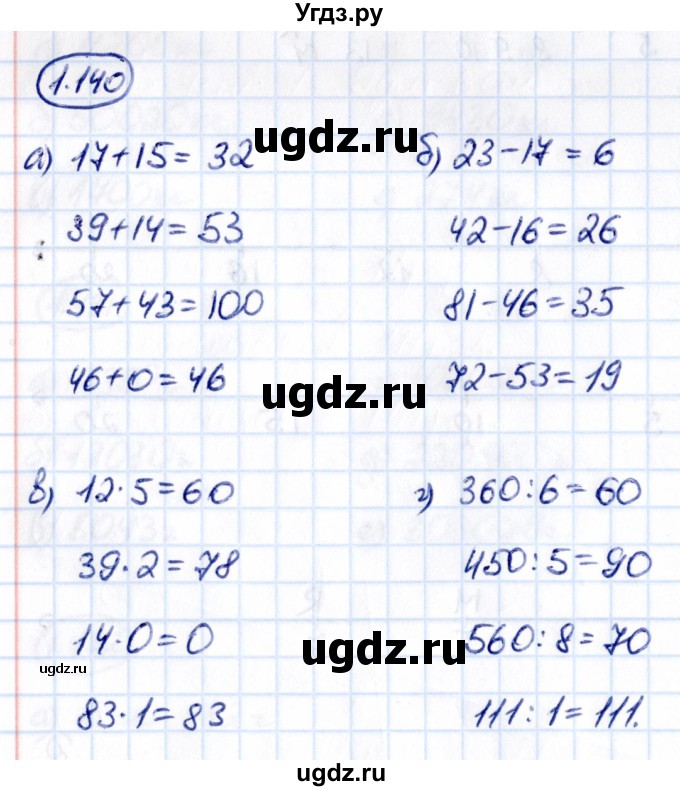 Угдз.ру
1.140
а) 17+15= 32
39+14= 53
57+43=100
46+0=46
б) 23-17=6
42-16=26
81-46=35
72-53=19
в) 12·5=60
39·2=78
14·0=0
83·1=83
г) 360:6=60
450:5=90
560:8=70
111:1=111.
ugdz.ru
ugdz.ru
ugdz.ru
ugdz.ru
ugdz.ru